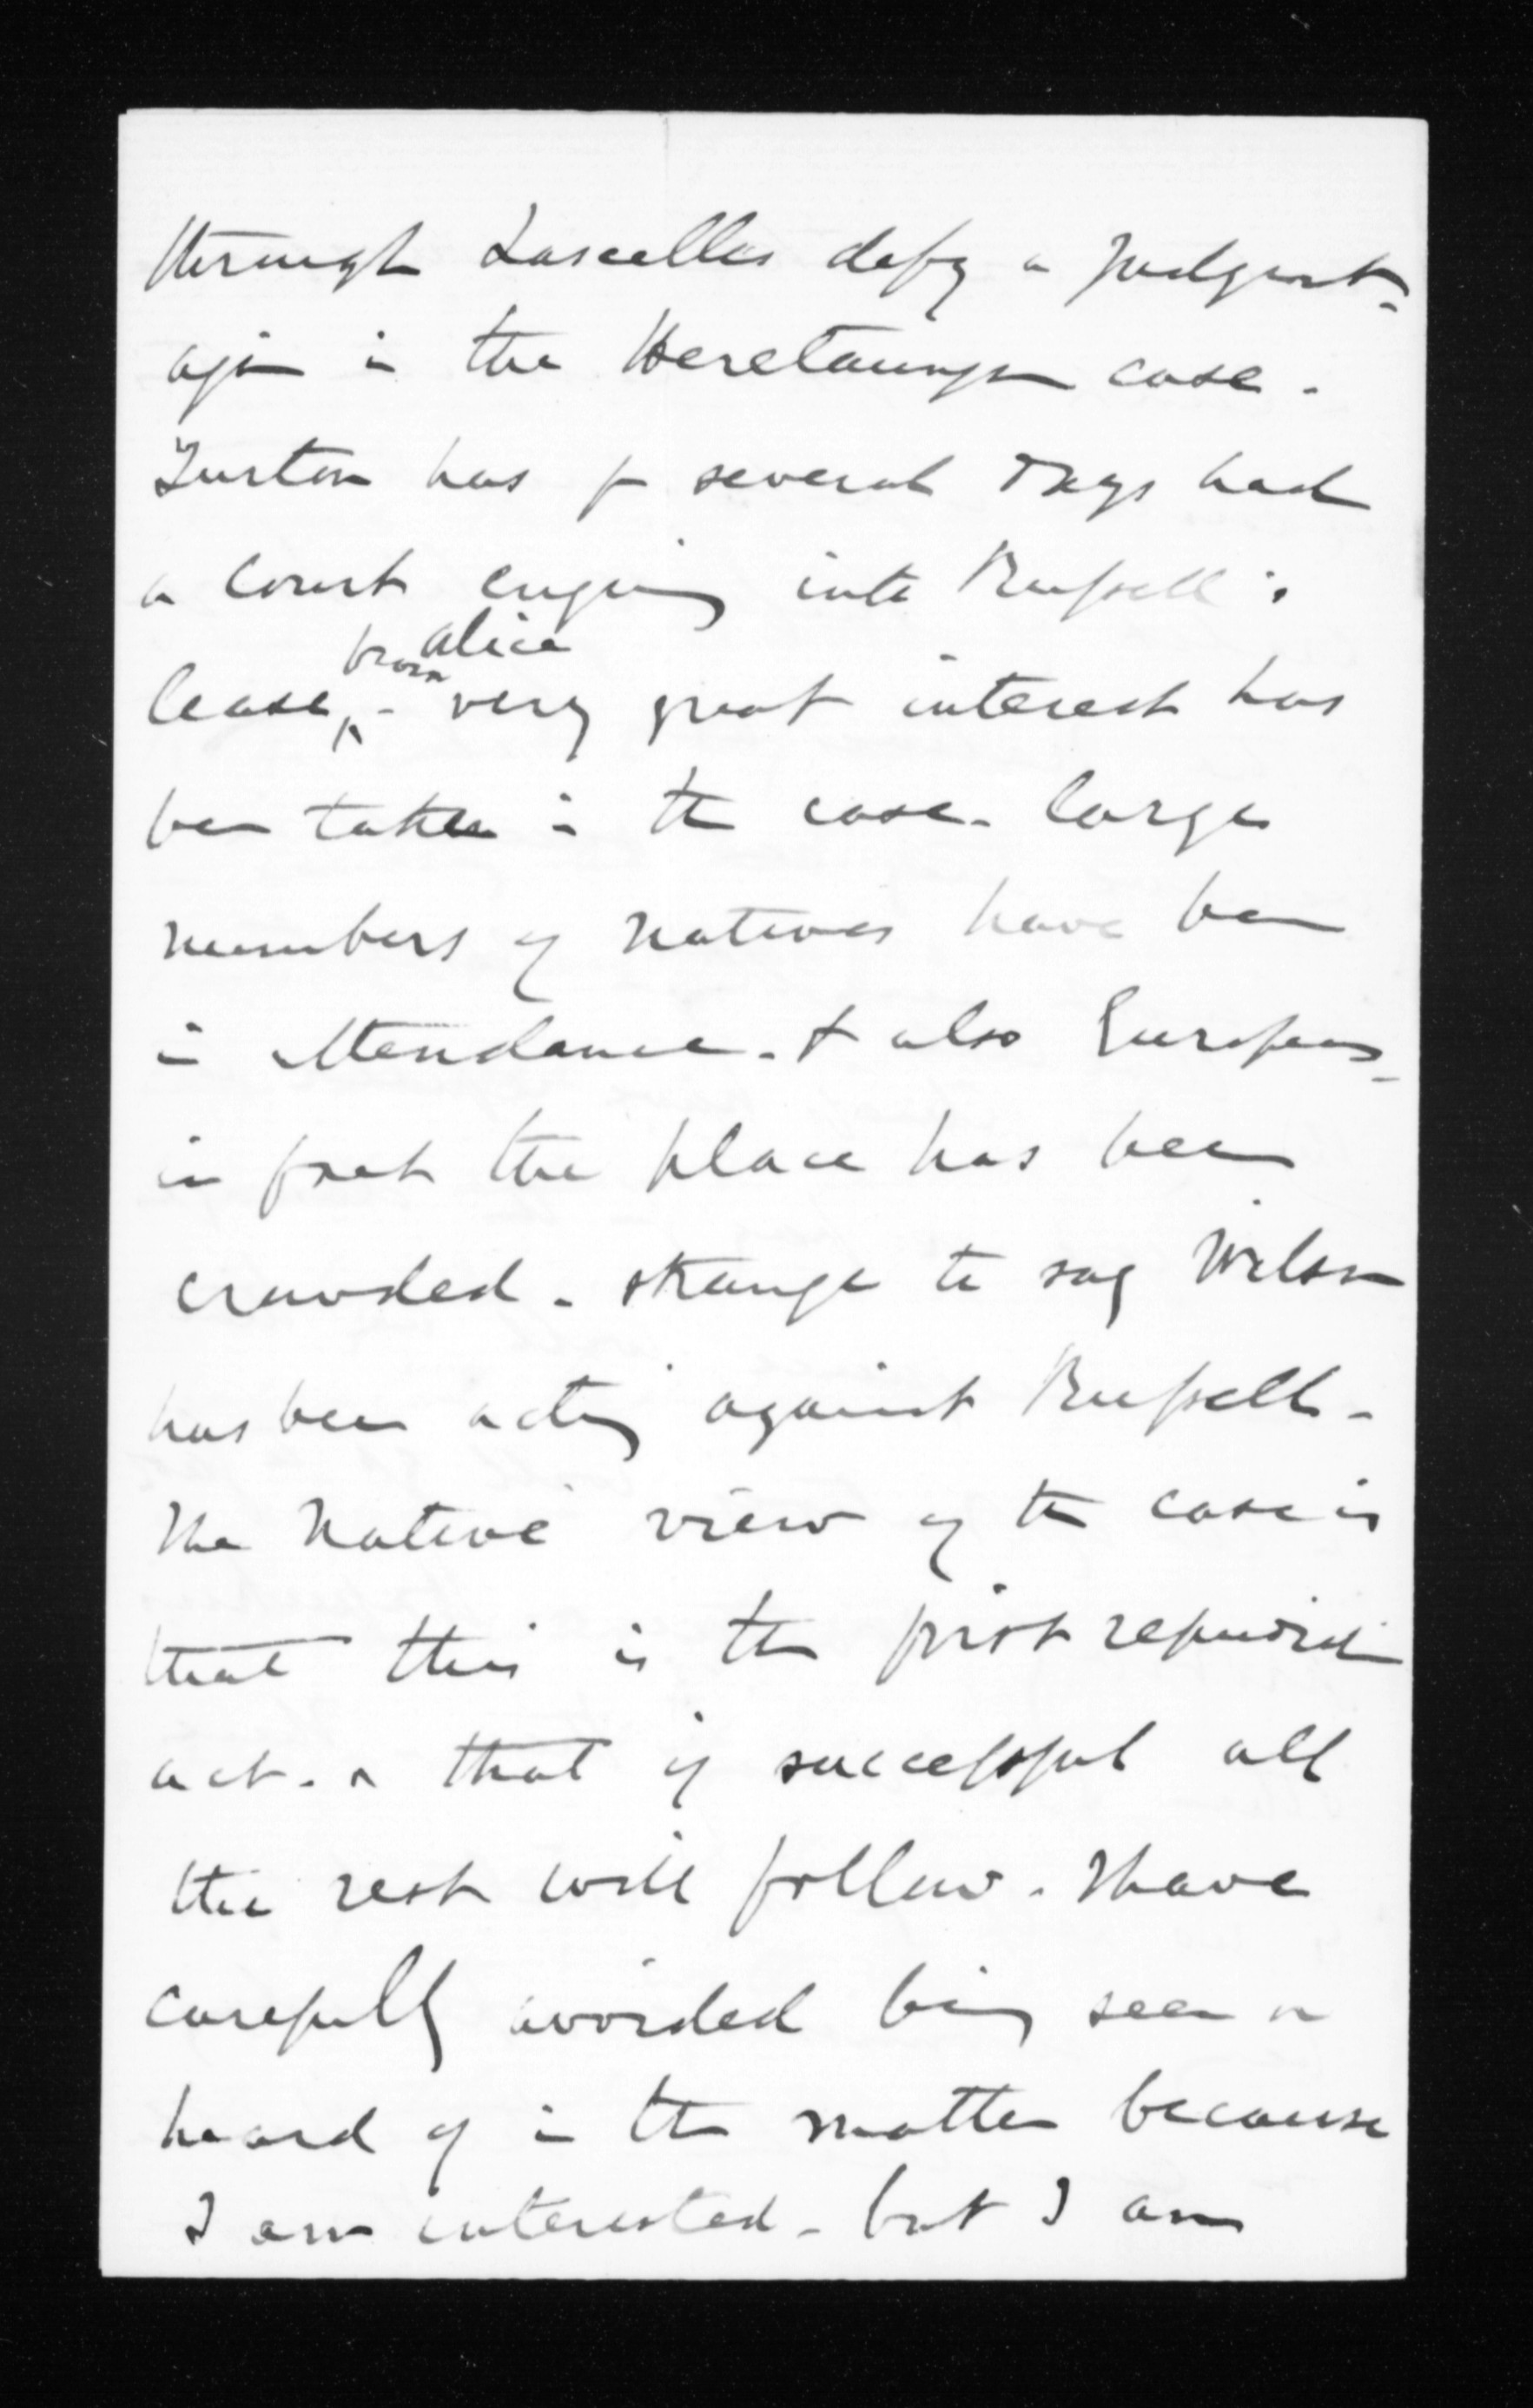 through Lascelles defy a Judgment -
again in the Heretaunga case -
Turton has for several Days had
a court enquiring into Russell's
from Alice
lease, - very great interest has
been taken in the case - large
numbers of natives have been
in attendance - & also Europeans -
in fact the place has been
crowded - strange to say Wilson
has been acting against Russell -
The Native view of the case is
that this is the first repudiation
act - & that if successful all
the rest will follow - I have
carefully avoided being seen or
heard of in the matter because
I am interested - but I am